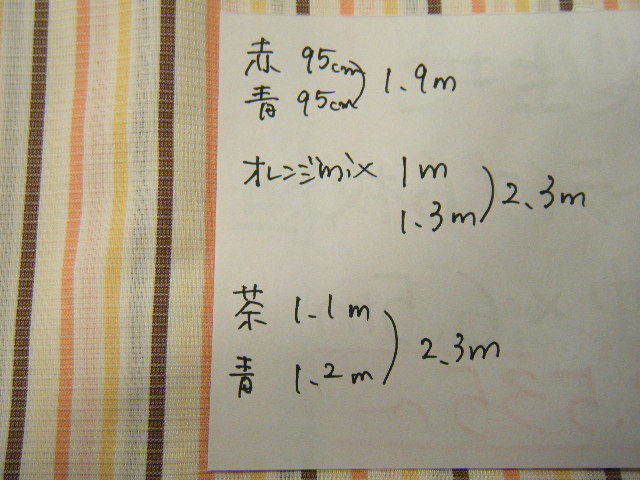 赤 95cm
青 95cm
1.9m
オレンジmix 1m
1.3m
2.3m
茶 1.1m
青 1.2m
2.3m